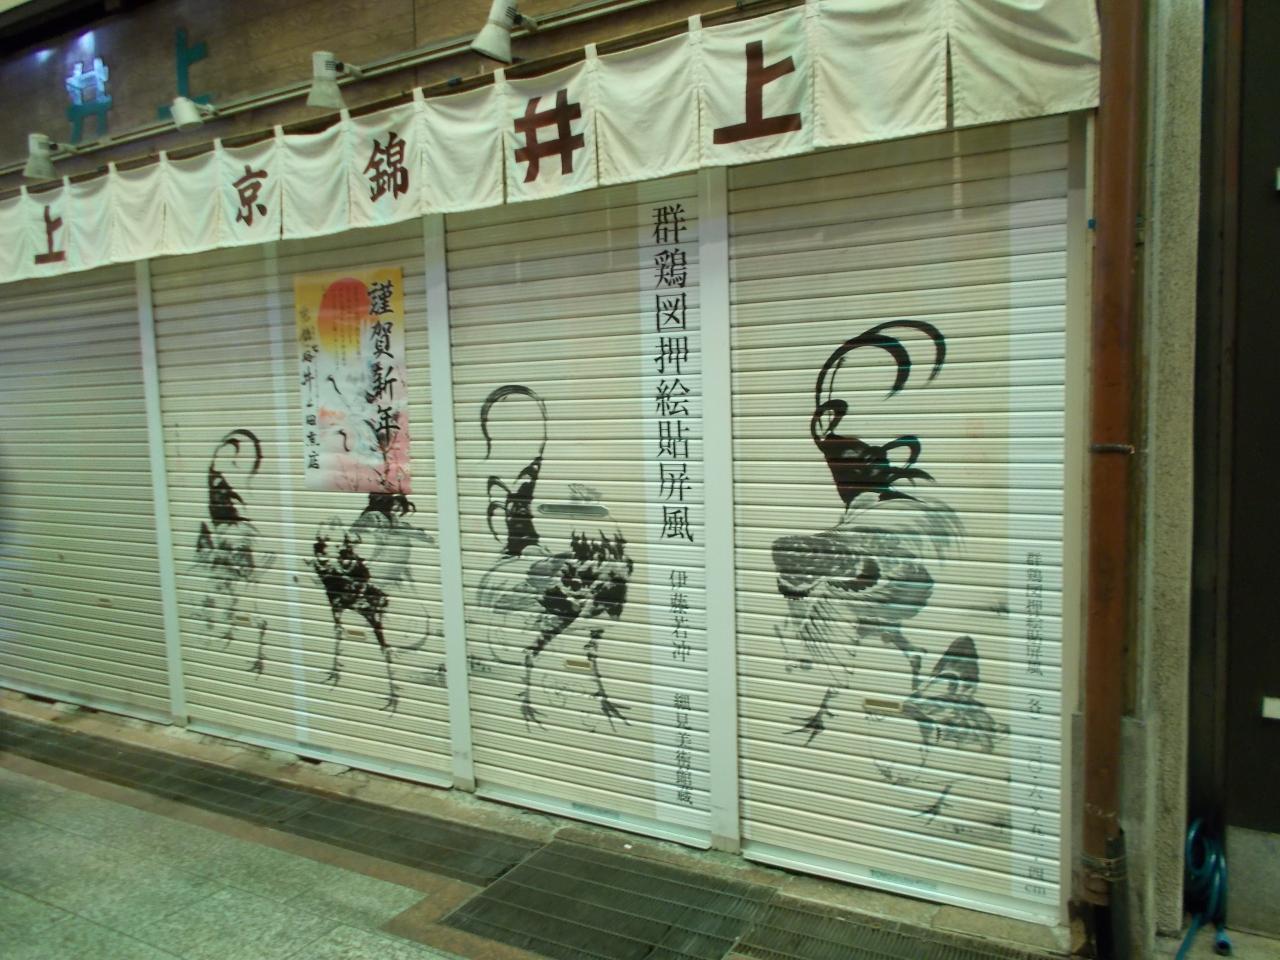 井上
上
京
錦
井
上
謹賀新年
群鶏図押絵貼屏風 伊藤若冲 細見美術館蔵
群鶏図押絵貼屏風